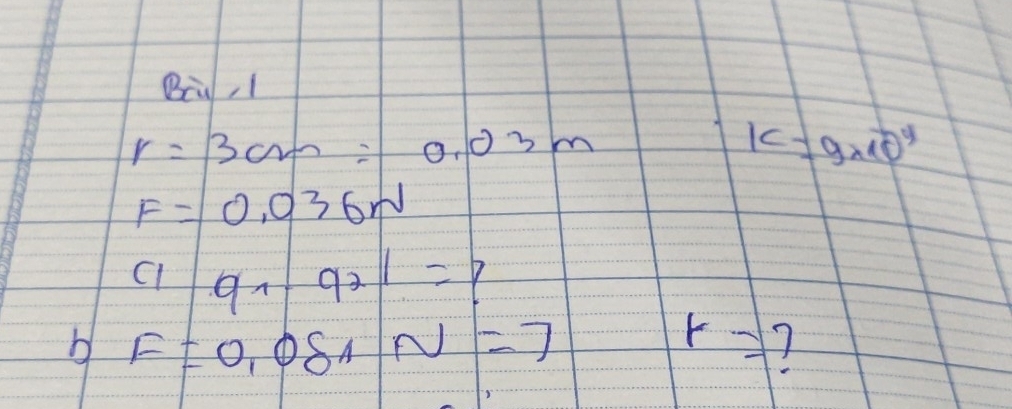 Bài 1
r = 3cm = 0,03 m K = 9x10⁹
F = 0,036N
a q1 q2 = ?
b F = 0,081 N => r = ?